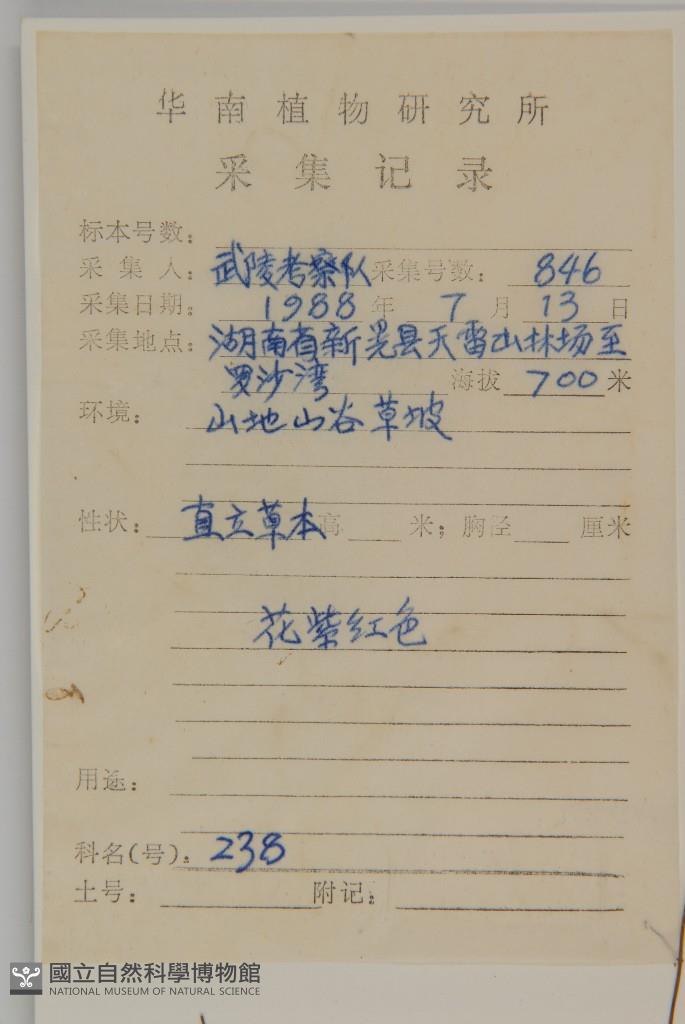 华南植物研究所
采集记录
标本号数：
采集人：武陵考察队采集号数：846
采集日期：1988年7月13日
采集地点：湖南省新晃县天雷山林场至
罗沙湾 海拔700米
环境：山地山谷草坡
性状：直立草本高 米；胸径 厘米
花紫红色
用途：
科名(号)：238
土号： 附记：
國立自然科學博物館
NATIONAL MUSEUM OF NATURAL SCIENCE